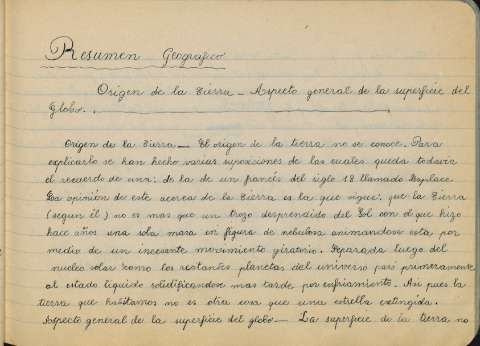 Resumen Geografico
Origen de la Tierra - Aspecto general de la superficie del
Globo.
Origen de la Tierra - El origen de la tierra no se conoce. Para
explicarlo se han hecho varias suposiciones de las cuales queda todavia
el recuerdo de una: de la de un francés del siglo 18 llamado Laplace
La opinión de este acerca de la Tierra es la que sigue: que la Tierra
(segun él) no es mas que un trozo desprendido del Sol con el que hizo
hace años una sola masa en figura de nebulosa animandose esta por
medio de un incesante movimiento giratorio. Separada luego del
nucleo solar como los restantes planetas del universo pasó primeramente
al estado liquido solidificandose mas tarde por enfriamiento. Asi pues la
tierra que habitamos no es otra cosa que una estrella extinguida.
Aspecto general de la superficie del globo - La superficie de la tierra no